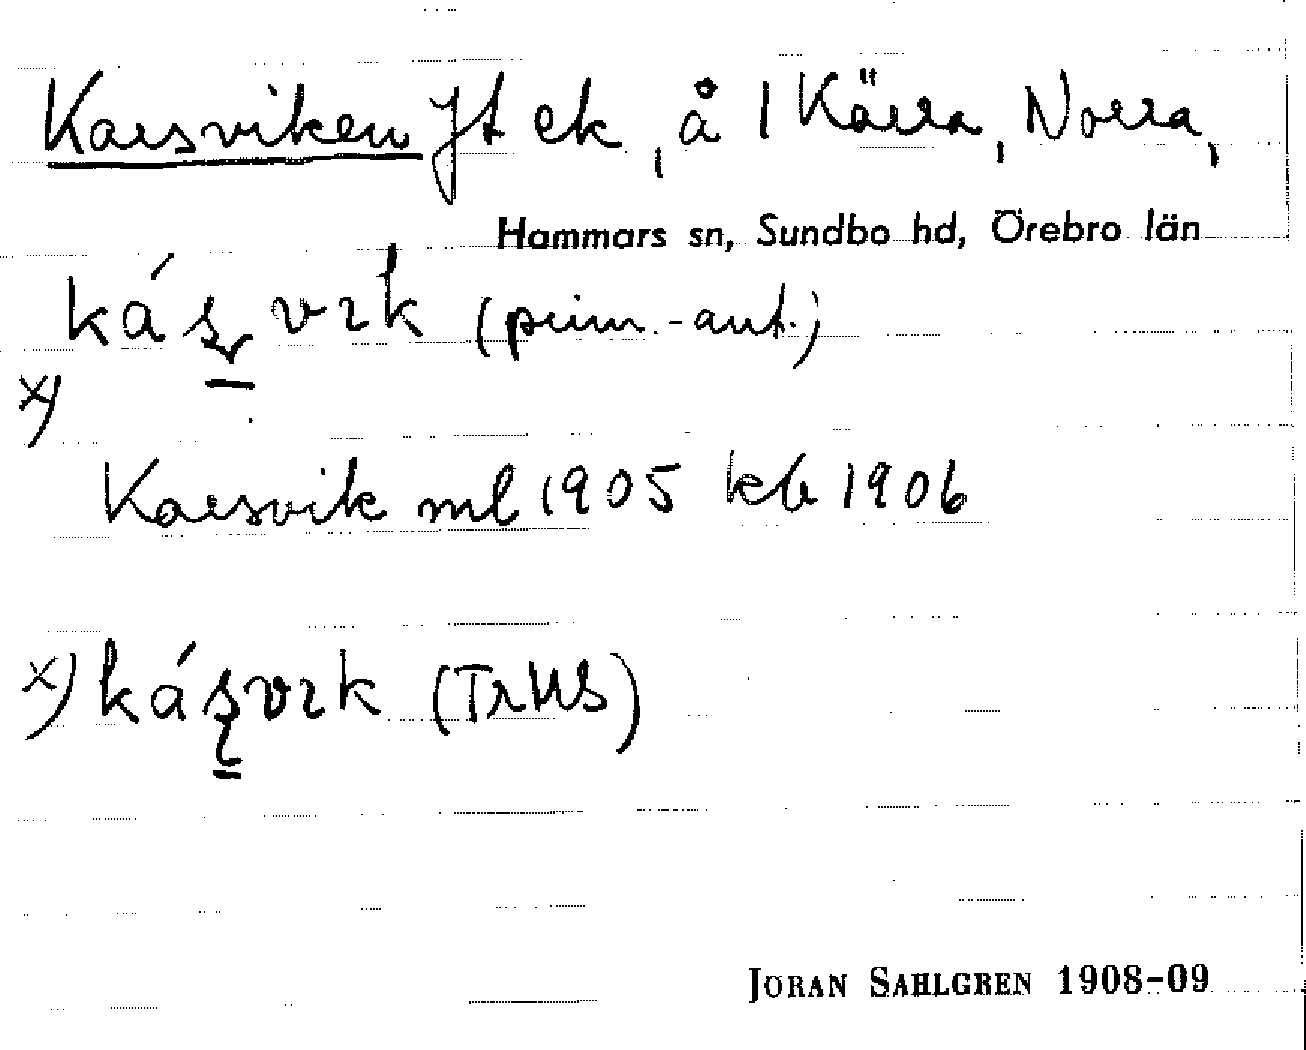 Karsviken Jt ek, å 1 Kärra, Norra,
Hammars sn, Sundbo hd, Örebro län
kás̬vık (prim.-ant.)
x)
Karsvik ml 1905 kb 1906
x) kás̨vık (TrUS)
JÖRAN SAHLGREN 1908-09